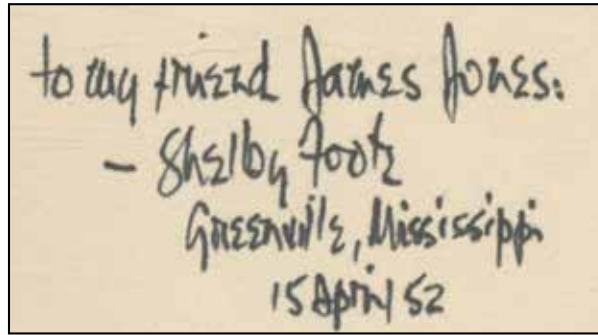 to my friend James Jones:
— Shelby Foote
Greenville, Mississippi
15 April 52